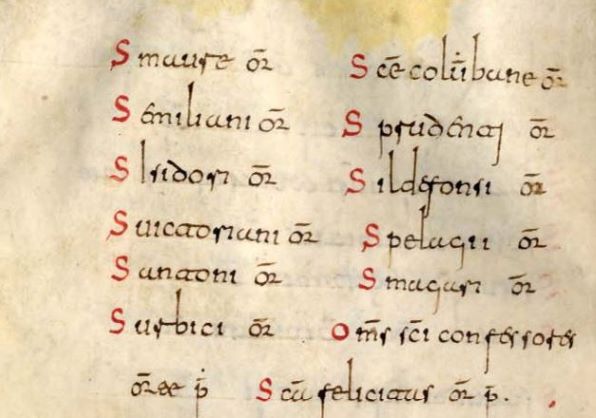 S maure or̄ S cē colūbane or̄
S ēmiliani or̄ S prudēntj or̄
S Isidori or̄ S ildefonsi or̄
S uictoriani or̄ S pelagii or̄
S antoni or̄ S magari or̄
S urbici or̄ Om̄s sc̄i confessores
or̄ee p̄ S cā felicitas or̄ p̄.